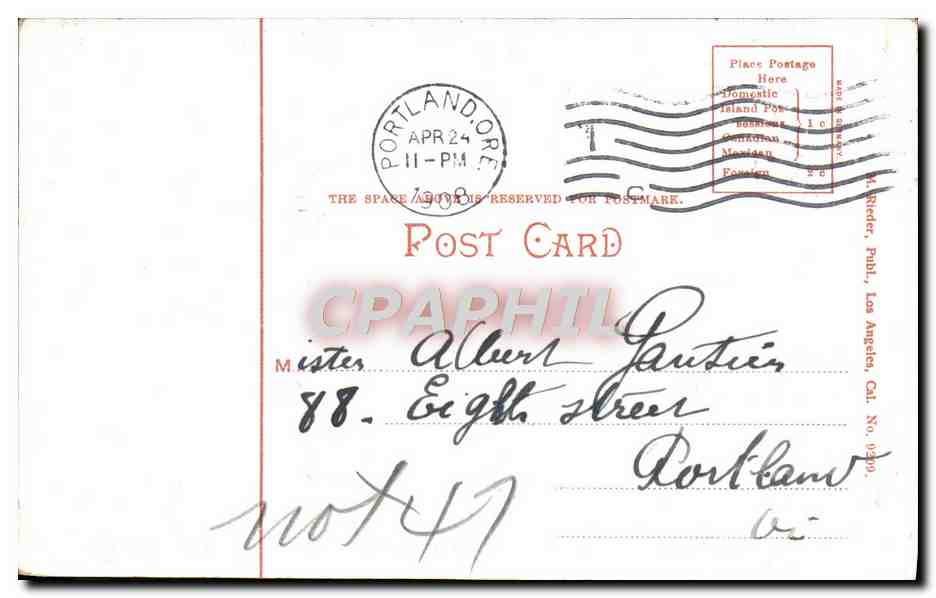 PORTLAND, ORE.
APR 24
11-PM
1908
1
C
Place Postage
Here
Domestic
Island Pos-
sessions
Canadian
Mexican
1 c
Foreign
2 c
MADE IN GERMANY.
THE SPACE ABOVE IS RESERVED FOR POSTMARK.
POST CARD
M. Rieder, Publ., Los Angeles, Cal. No. 9209.
CPAPHIL
Mister Albert Gautier
88. Eight street
Portland
not 47